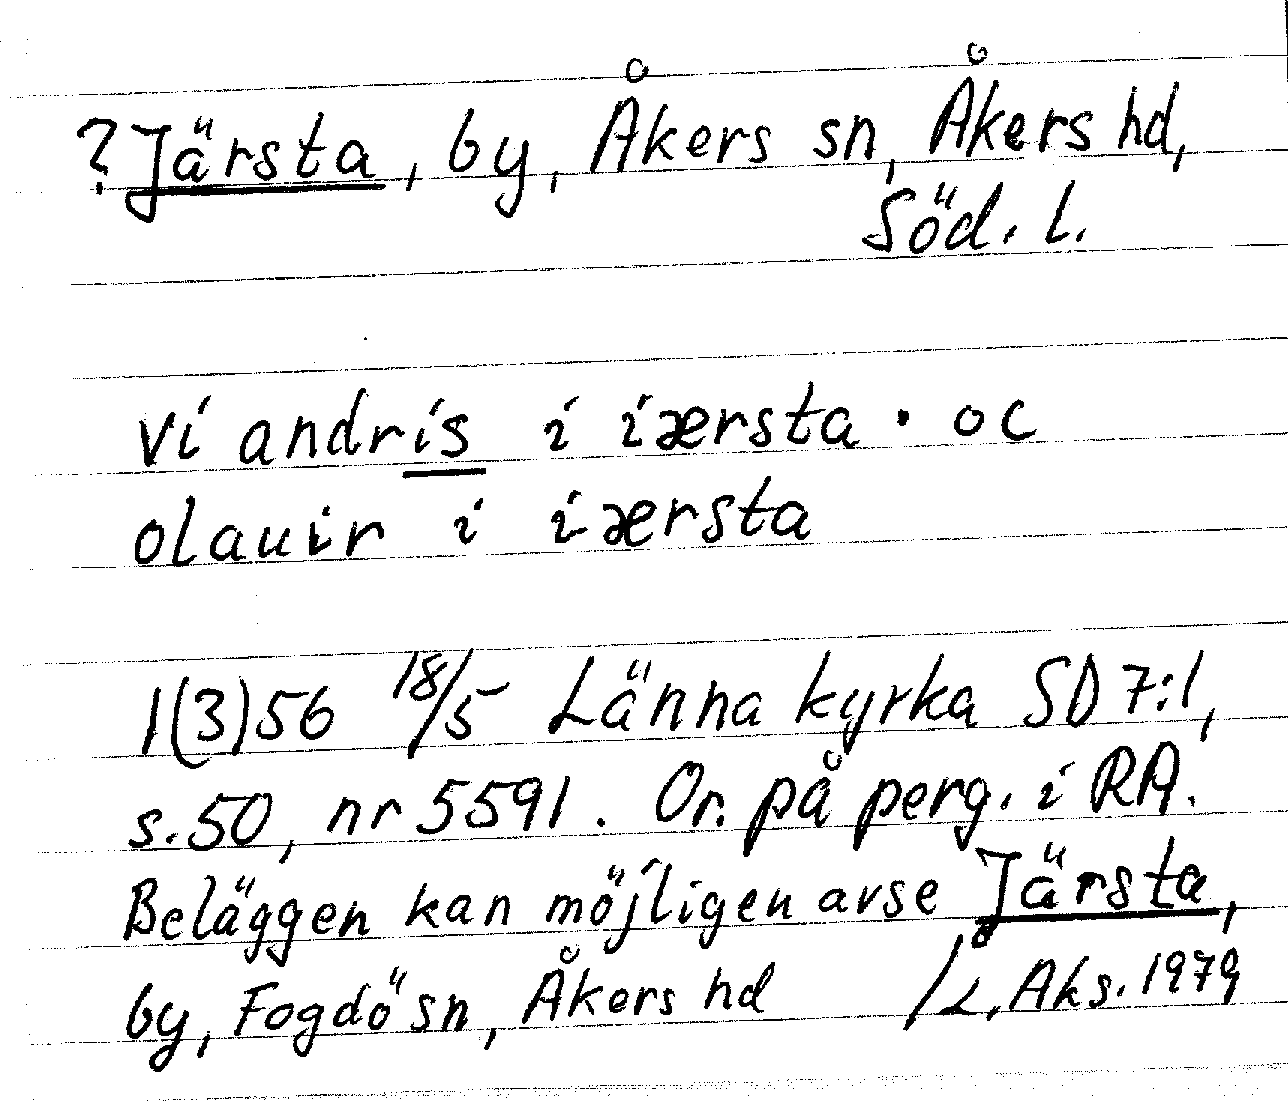 ?Järsta, by, Åkers sn, Åkers hd,
Söd. l.
vi andris i iærsta · oc
olauir i iærsta
1(3)56 18/5 Länna kyrka SD 7:1,
s.50, nr 5591. Or. på perg. i RA.
Beläggen kan möjligen avse Järsta,
by, Fogdö sn, Åkers hd /L. Aks. 1979